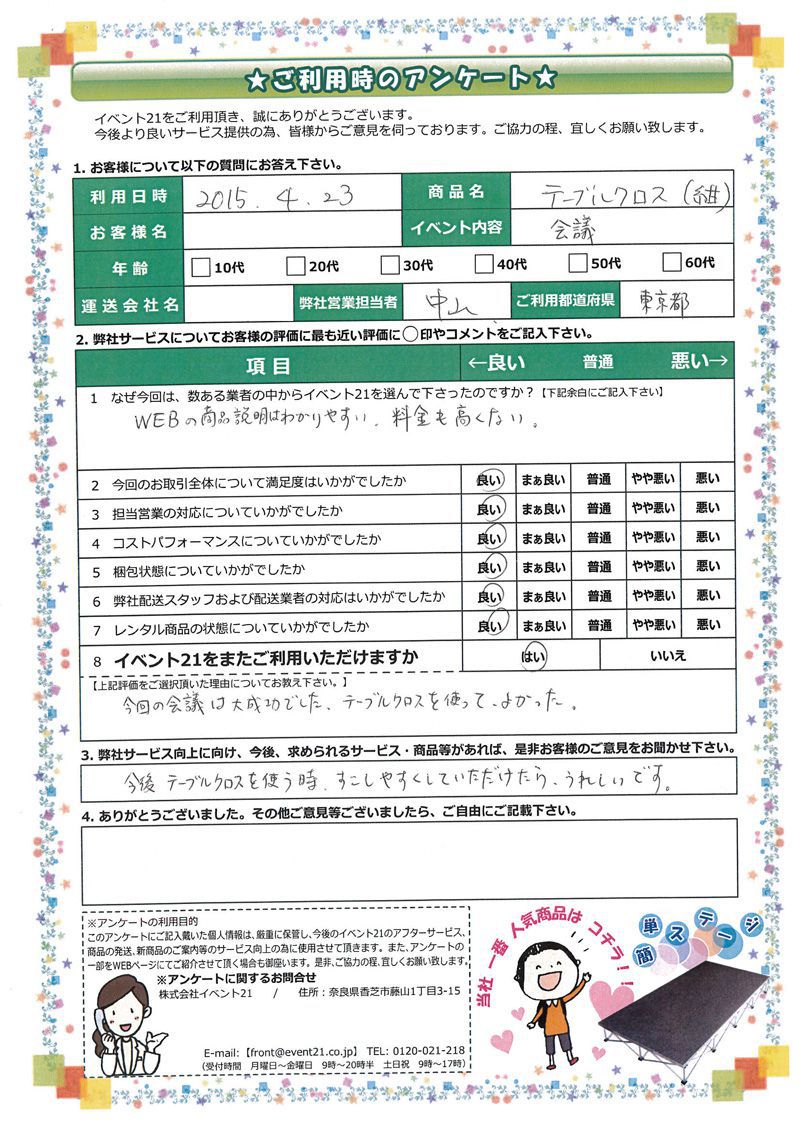 ★ご利用時のアンケート★
イベント21をご利用頂き、誠にありがとうございます。
今後より良いサービス提供の為、皆様からご意見を伺っております。ご協力の程、宜しくお願い致します。
1. お客様について以下の質問にお答え下さい。
利用日時 2015.4.23 商品名 テーブルクロス(紺)
お客様名 イベント内容 会議
年齢 10代 20代 30代 40代 50代 60代
運送会社名 弊社営業担当者 中山 ご利用都道府県 東京都
2. 弊社サービスについてお客様の評価に最も近い評価に○印やコメントをご記入下さい。
項目 ←良い 普通 悪い→
1 なぜ今回は、数ある業者の中からイベント21を選んで下さったのですか?【下記余白にご記入下さい】
WEBの商品説明はわかりやすい、料金も高くない。
2 今回のお取引全体について満足度はいかがでしたか 良い まぁ良い 普通 やや悪い 悪い
3 担当営業の対応についていかがでしたか 良い まぁ良い 普通 やや悪い 悪い
4 コストパフォーマンスについていかがでしたか 良い まぁ良い 普通 やや悪い 悪い
5 梱包状態についていかがでしたか 良い まぁ良い 普通 やや悪い 悪い
6 弊社配送スタッフおよび配送業者の対応はいかがでしたか 良い まぁ良い 普通 やや悪い 悪い
7 レンタル商品の状態についていかがでしたか 良い まぁ良い 普通 やや悪い 悪い
8 イベント21をまたご利用いただけますか はい いいえ
【上記評価をご選択頂いた理由についてお教え下さい。】
今回の会議は大成功でした、テーブルクロスを使って、よかった。
3. 弊社サービス向上に向け、今後、求められるサービス・商品等があれば、是非お客様のご意見をお聞かせ下さい。
今後テーブルクロスを使う時、すこしやすくしていただけたら、うれしいです。
4. ありがとうございました。その他ご意見等ございましたら、ご自由にご記載下さい。
※アンケートの利用目的
このアンケートにご記入戴いた個人情報は、厳重に保管し、今後のイベント21のアフターサービス、
商品の発送、新商品のご案内等のサービス向上の為に使用させて頂きます。また、アンケートの
一部をWEBページにてご紹介させて頂く場合も御座います。是非、ご協力の程、宜しくお願い致します。
※アンケートに関するお問合せ
株式会社イベント21 / 住所:奈良県香芝市藤山1丁目3-15
E-mail:【front@event21.co.jp】 TEL: 0120-021-218
(受付時間 月曜日~金曜日 9時~20時半 土日祝 9時~17時)
当社一番人気商品はコチラ!!
簡単ステージ